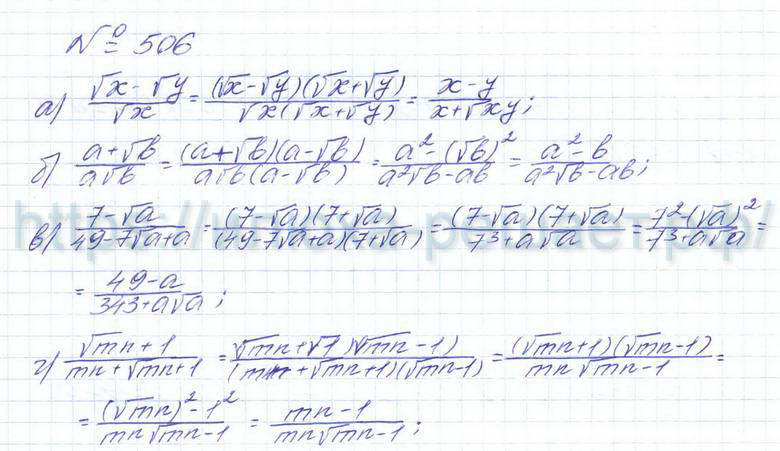 № 506
а) (√x - √y)/√x = (√x - √y)(√x + √y)/√x(√x + √y) = (x - y)/(x + √xy);
б) (a + √b)/(a√b) = (a + √b)(a - √b)/a√b(a - √b) = (a² - (√b)²)/(a²√b - ab) = (a² - b)/(a²√b - ab);
в) (7 - √a)/(49 - 7√a + a) = (7 - √a)(7 + √a)/(49 - 7√a + a)(7 + √a) = (7 - √a)(7 + √a)/(7³ + a√a) = (7² - (√a)²)/(7³ + a√a) =
= (49 - a)/(343 + a√a);
г) (√mn + 1)/(mn + √mn + 1) = (√mn + √1)(√mn - 1)/(mn + √mn + 1)(√mn - 1) = (√mn + 1)(√mn - 1)/(mn√mn - 1) =
= ((√mn)² - 1²)/(mn√mn - 1) = (mn - 1)/(mn√mn - 1);